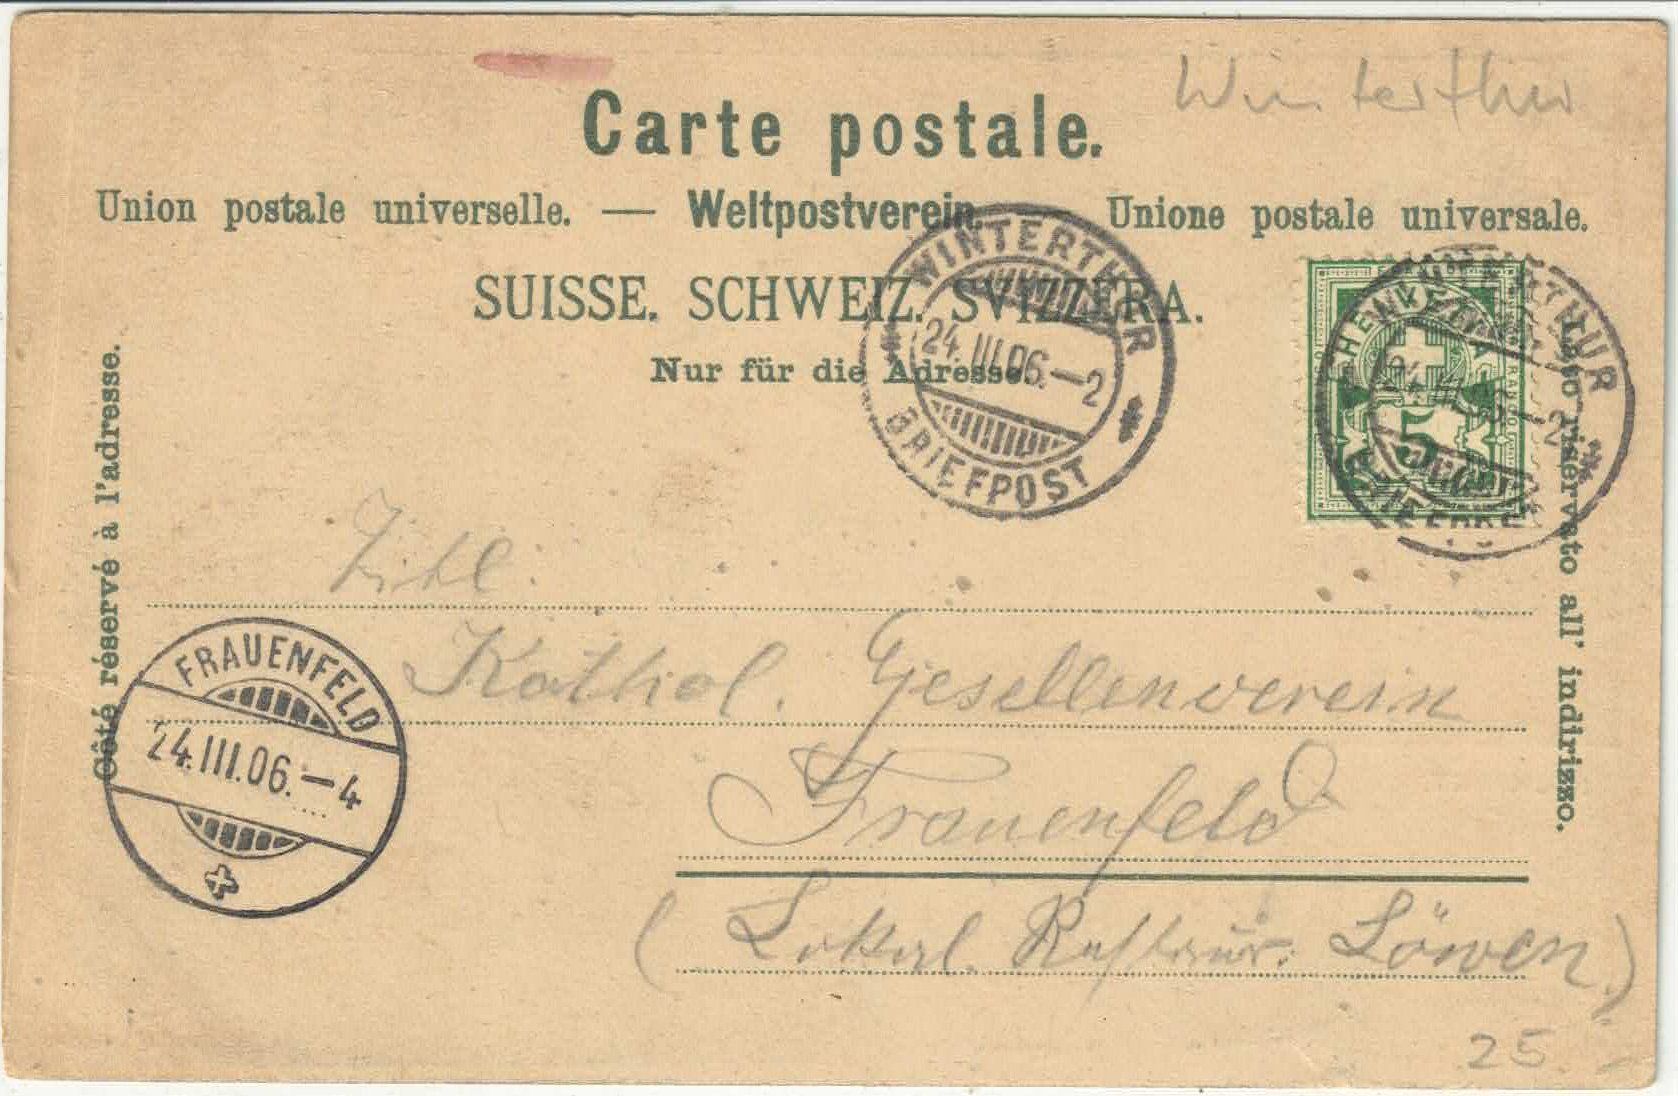 Winterthur
Carte postale.
Union postale universelle. — Weltpostverein. Unione postale universale.
SUISSE. SCHWEIZ. SVIZZERA.
Nur für die Adresse.
WINTERTHUR
24.III.06.—2
BRIEFPOST
HELVETIA
5
WINTERTHUR
BRIEFPOST
Côté réservé à l'adresse.
Lato riservato all' indirizzo.
Kathol. Gesellenverein
FRAUENFELD
24.III.06.—4
Frauenfeld
(Lokal Restaur. Löwen)
25.-